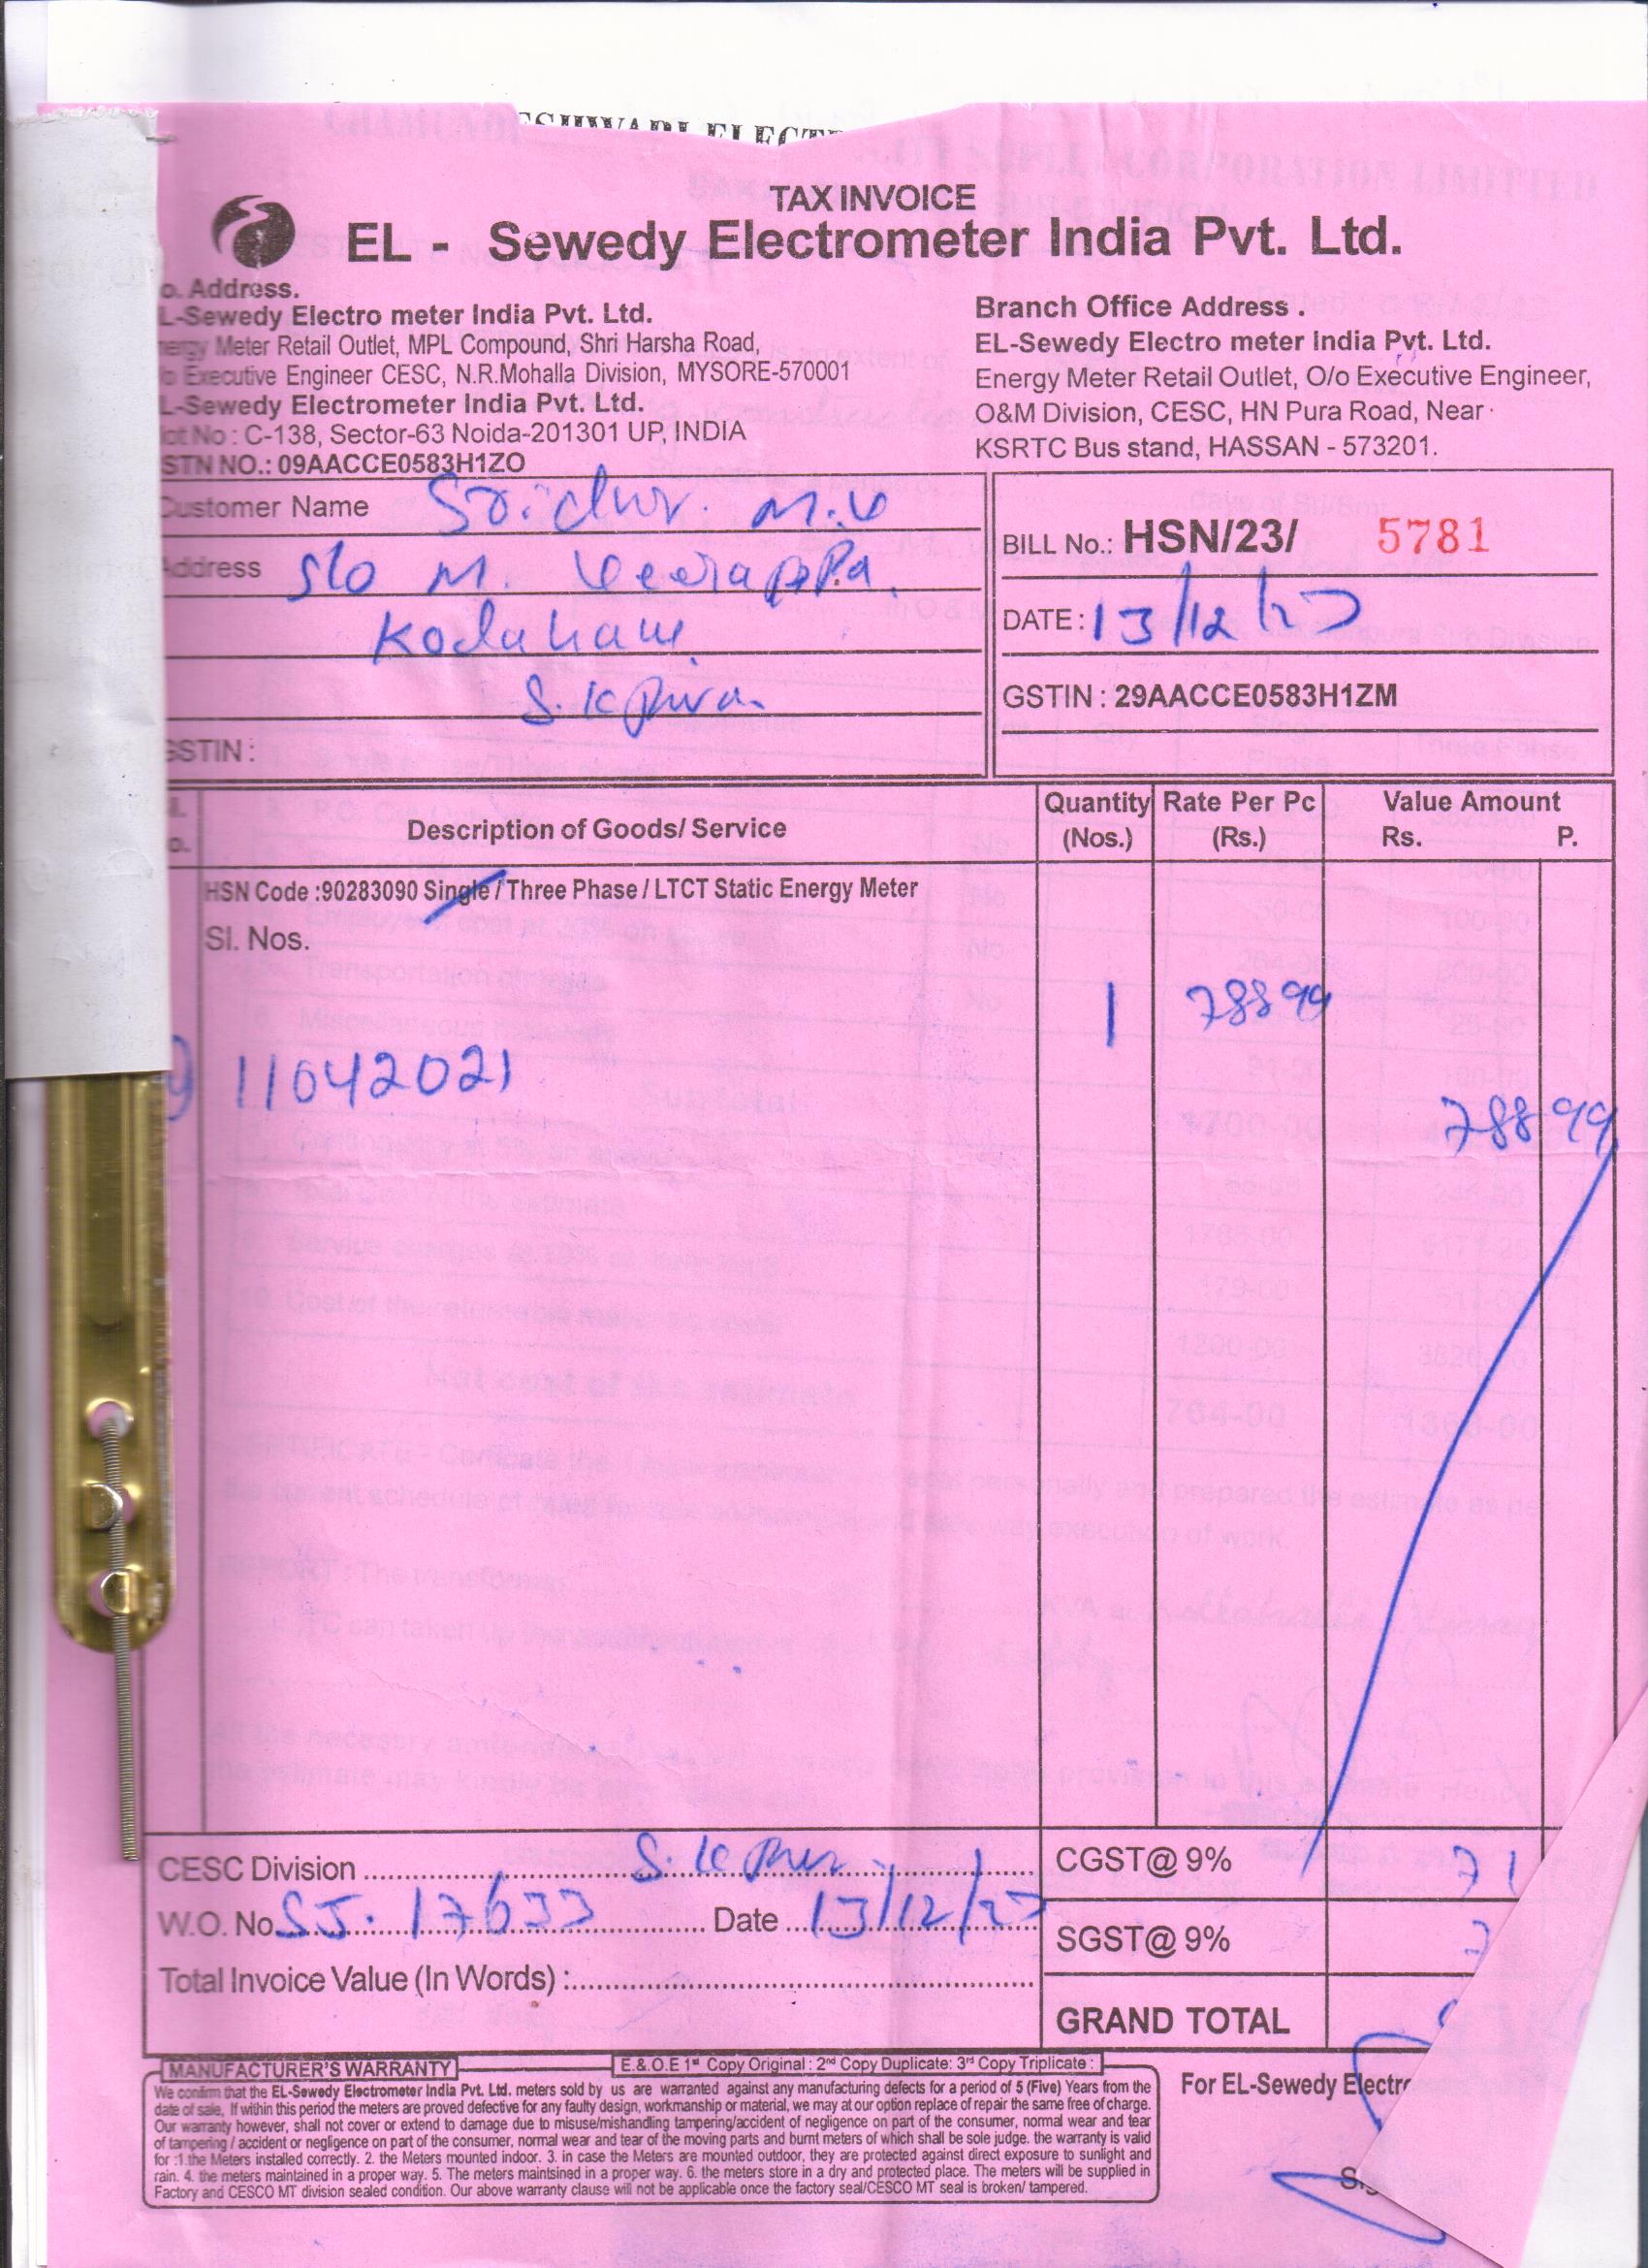 TAX INVOICE
EL - Sewedy Electrometer India Pvt. Ltd.
o. Address.
L-Sewedy Electro meter India Pvt. Ltd.
ergy Meter Retail Outlet, MPL Compound, Shri Harsha Road,
o Executive Engineer CESC, N.R.Mohalla Division, MYSORE-570001
L-Sewedy Electrometer India Pvt. Ltd.
ot No : C-138, Sector-63 Noida-201301 UP, INDIA
STN NO.: 09AACCE0583H1ZO
Branch Office Address .
EL-Sewedy Electro meter India Pvt. Ltd.
Energy Meter Retail Outlet, O/o Executive Engineer,
O&M Division, CESC, HN Pura Road, Near
KSRTC Bus stand, HASSAN - 573201.
Customer Name Sridhar. M.V
Address S/o M. Veerappa.
S.K Pura.
GSTIN :
BILL No.: HSN/23/ 5781
DATE : 13/12/23
GSTIN : 29AACCE0583H1ZM
Description of Goods/ Service Quantity (Nos.) Rate Per Pc (Rs.) Value Amount Rs. P.
HSN Code :90283090 Single / Three Phase / LTCT Static Energy Meter
Sl. Nos.
1 788 99
11042021
788 99
CESC Division S. K Pura CGST@ 9% 71
W.O. No. SJ. 17633 Date 13/12/23
SGST@ 9% 7
Total Invoice Value (In Words) :
GRAND TOTAL
MANUFACTURER'S WARRANTY E.& O.E 1st Copy Original : 2nd Copy Duplicate: 3rd Copy Triplicate :
We confirm that the EL-Sewedy Electrometer India Pvt. Ltd. meters sold by us are warranted against any manufacturing defects for a period of 5 (Five) Years from the
date of sale, If within this period the meters are proved defective for any faulty design, workmanship or material, we may at our option replace of repair the same free of charge.
Our warranty however, shall not cover or extend to damage due to misuse/mishandling tampering/accident of negligence on part of the consumer, normal wear and tear
of tampering / accident or negligence on part of the consumer, normal wear and tear of the moving parts and burnt meters of which shall be sole judge. the warranty is valid
for :1.the Meters installed correctly. 2. the Meters mounted indoor. 3. in case the Meters are mounted outdoor, they are protected against direct exposure to sunlight and
rain. 4. the meters maintained in a proper way. 5. The meters maintsined in a proper way. 6. the meters store in a dry and protected place. The meters will be supplied in
Factory and CESCO MT division sealed condition. Our above warranty clause will not be applicable once the factory seal/CESCO MT seal is broken/ tampered.
For EL-Sewedy Electr